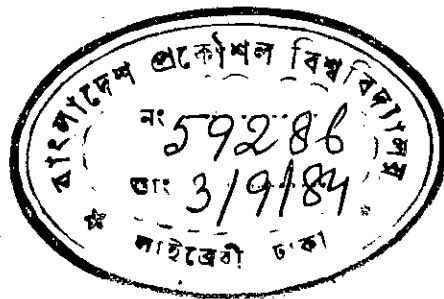 বাংলাদেশ প্রকৌশল বিশ্ববিদ্যালয়
নং 59286
তাং 3/9/84
লাইব্রেরী ঢাকা